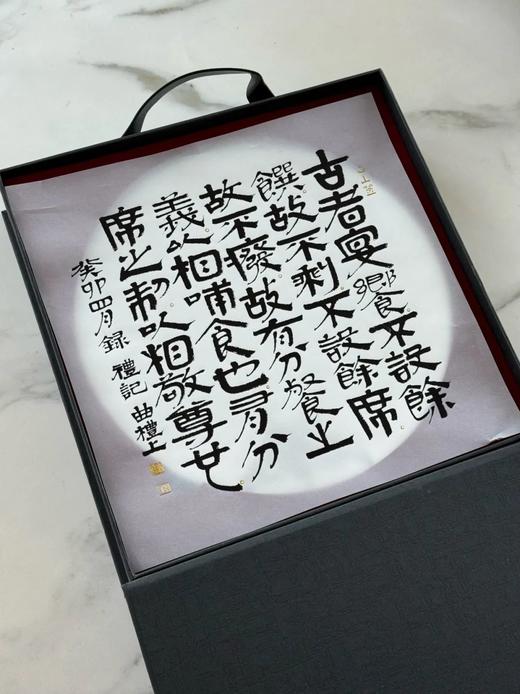 古者宴饗不設餘
饌故不剩不設餘席
故不廢故有分餐之
義以相哺食也有分
席之制以相敬尊也
癸卯四月録禮記曲禮上